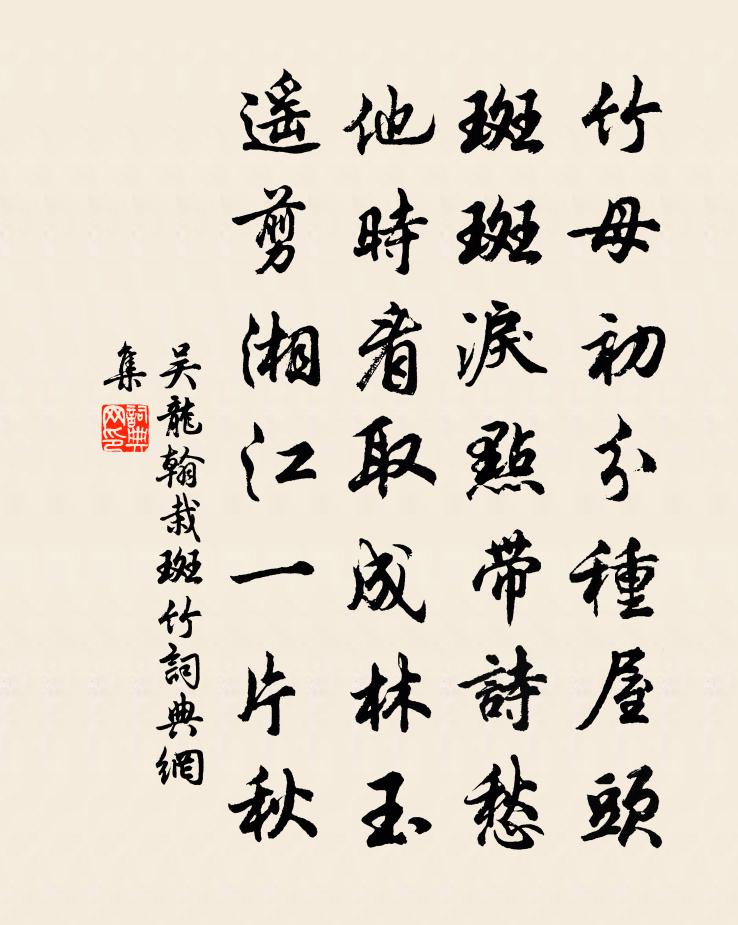 竹母初分種屋頭
斑斑淚點帶詩愁
他時看取成林玉
遥剪湘江一片秋
吴龍翰栽斑竹詞典網
集
詞典
网印